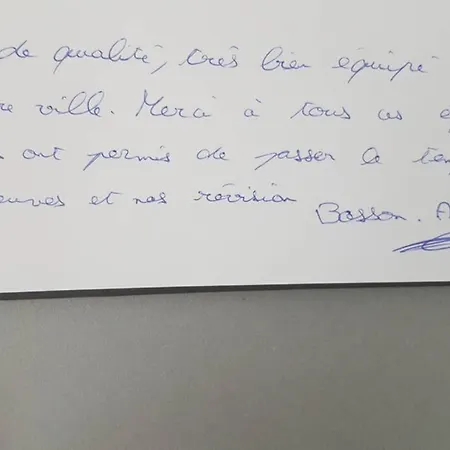 de qualité, très bien équipé
re ville. Merci à tous ces e
ont permis de passer le tem
euves et nos révision
Bosson. A